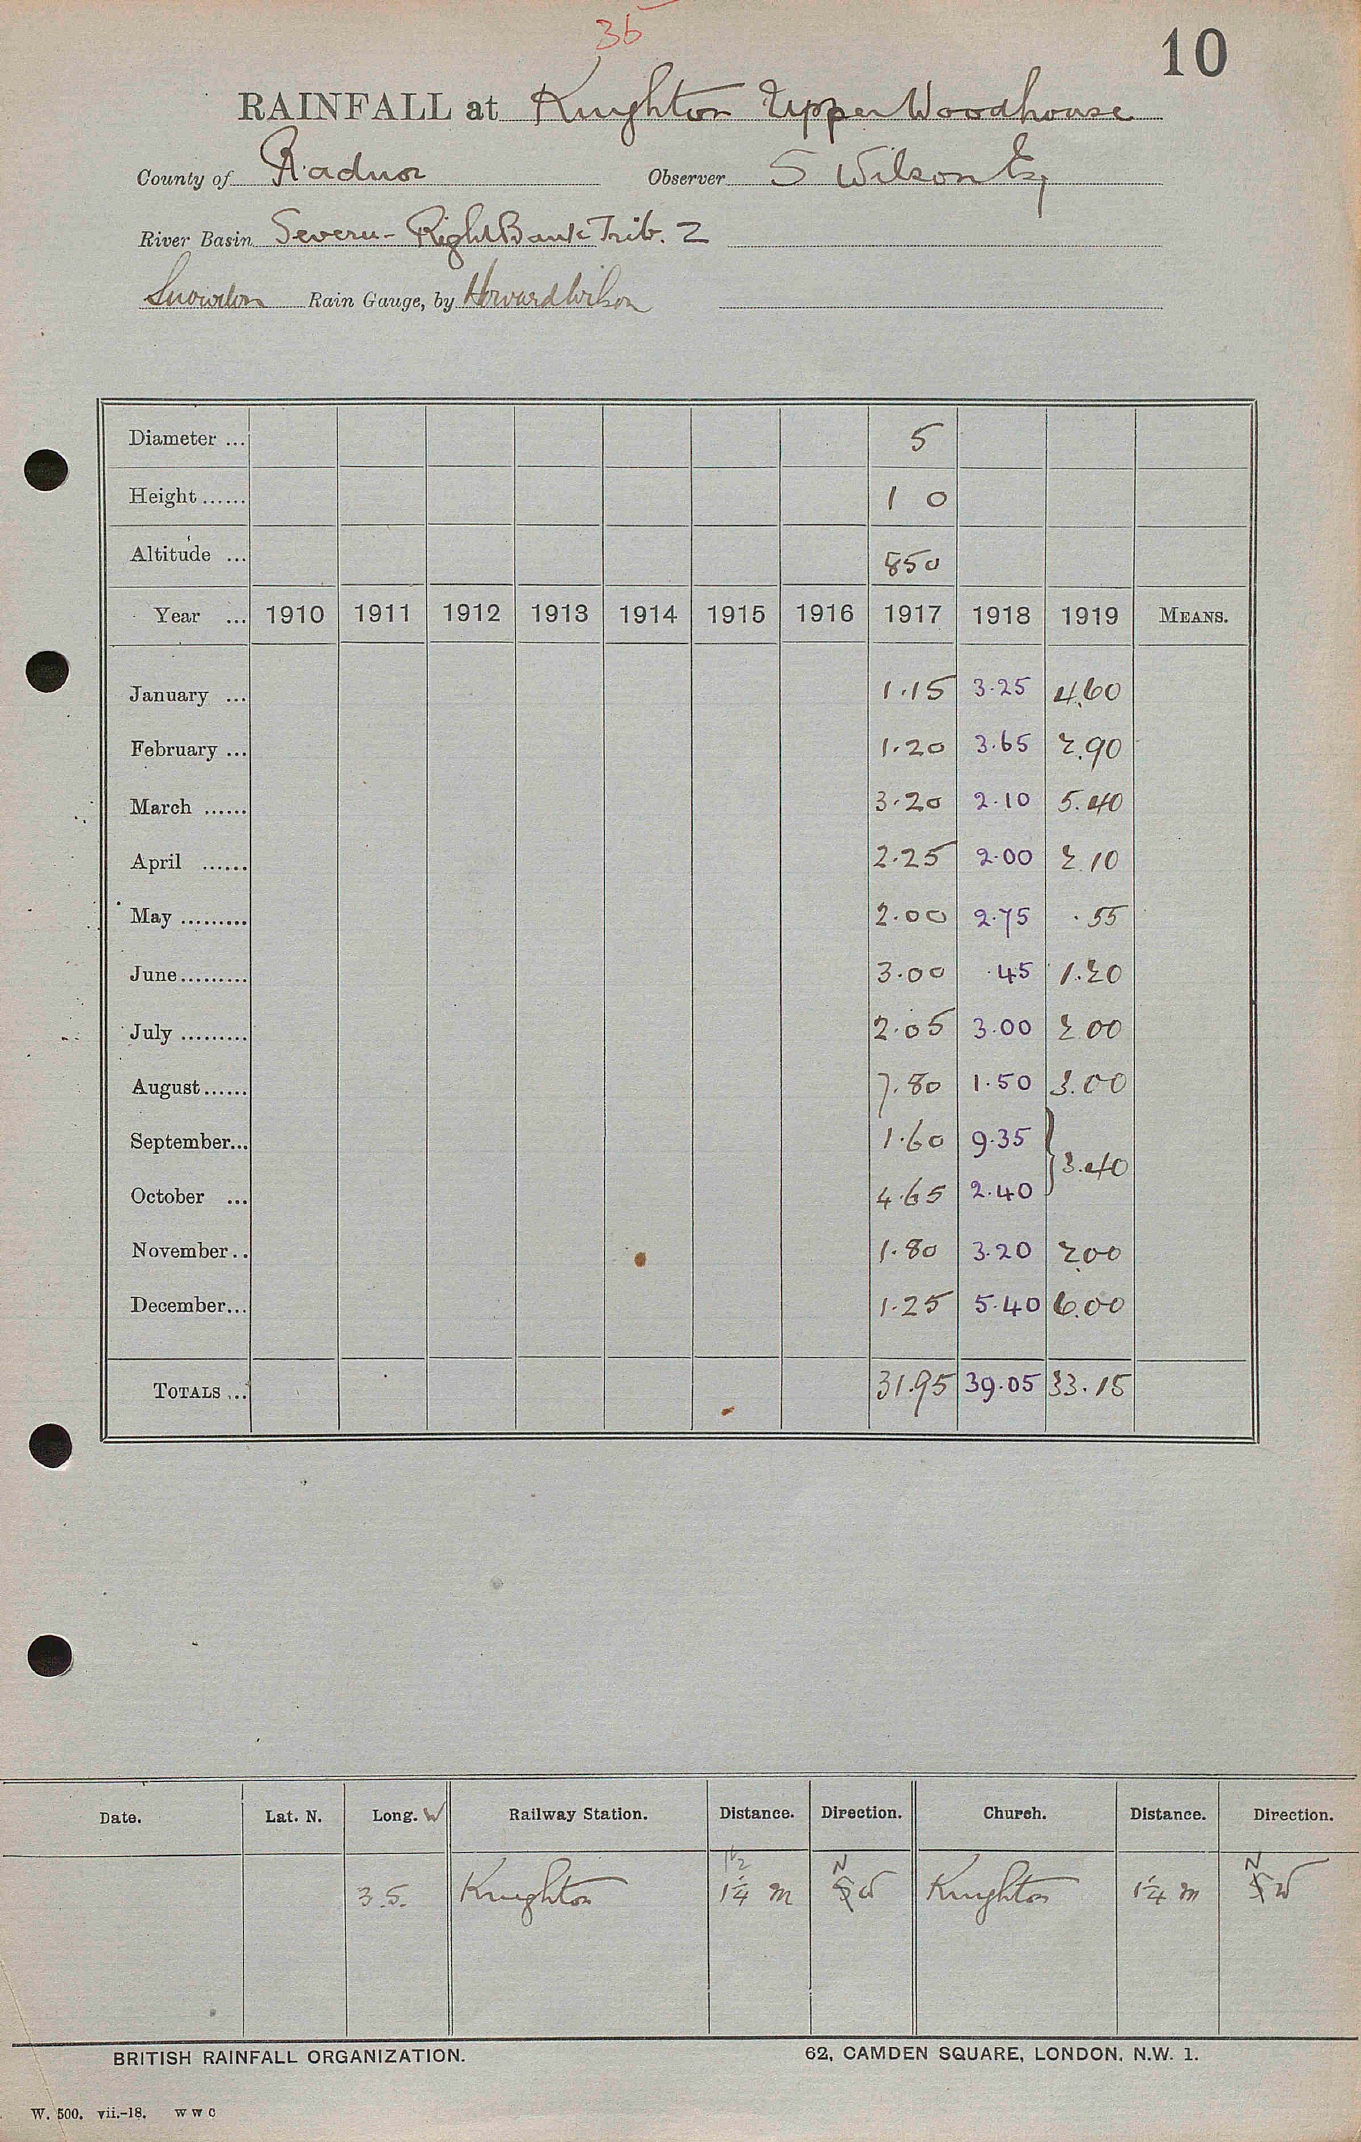 36
10
RAINFALL at Knighton Upper Woodhouse
County of Radnor Observer S Wilson Esq
River Basin Severn - Right Bank Trib. 2
Snowdon Rain Gauge, by Howard Wilson
Diameter ... 5
Height ...... 1 0
Altitude ... 850
Year ... 1910 1911 1912 1913 1914 1915 1916 1917 1918 1919 MEANS.
January ... 1.15 3.25 4.60
February ... 1.20 3.65 2.90
March ...... 3.20 2.10 5.40
April ...... 2.25 2.00 2.10
May ......... 2.00 2.75 .55
June ......... 3.00 .45 1.20
July ......... 2.05 3.00 2.00
August ...... 7.80 1.50 3.00
September... 1.60 9.35
3.40
October ... 4.65 2.40
November .. 1.80 3.20 2.00
December... 1.25 5.40 6.00
TOTALS ... 31.95 39.05 33.15
Date. Lat. N. Long. W Railway Station. Distance. Direction. Church. Distance. Direction.
1½ N N
3.5. Knighton 1¼ m SW Knighton 1¼ m SW
BRITISH RAINFALL ORGANIZATION. 62, CAMDEN SQUARE, LONDON, N.W. 1.
W. 500. vii.-18. W W C